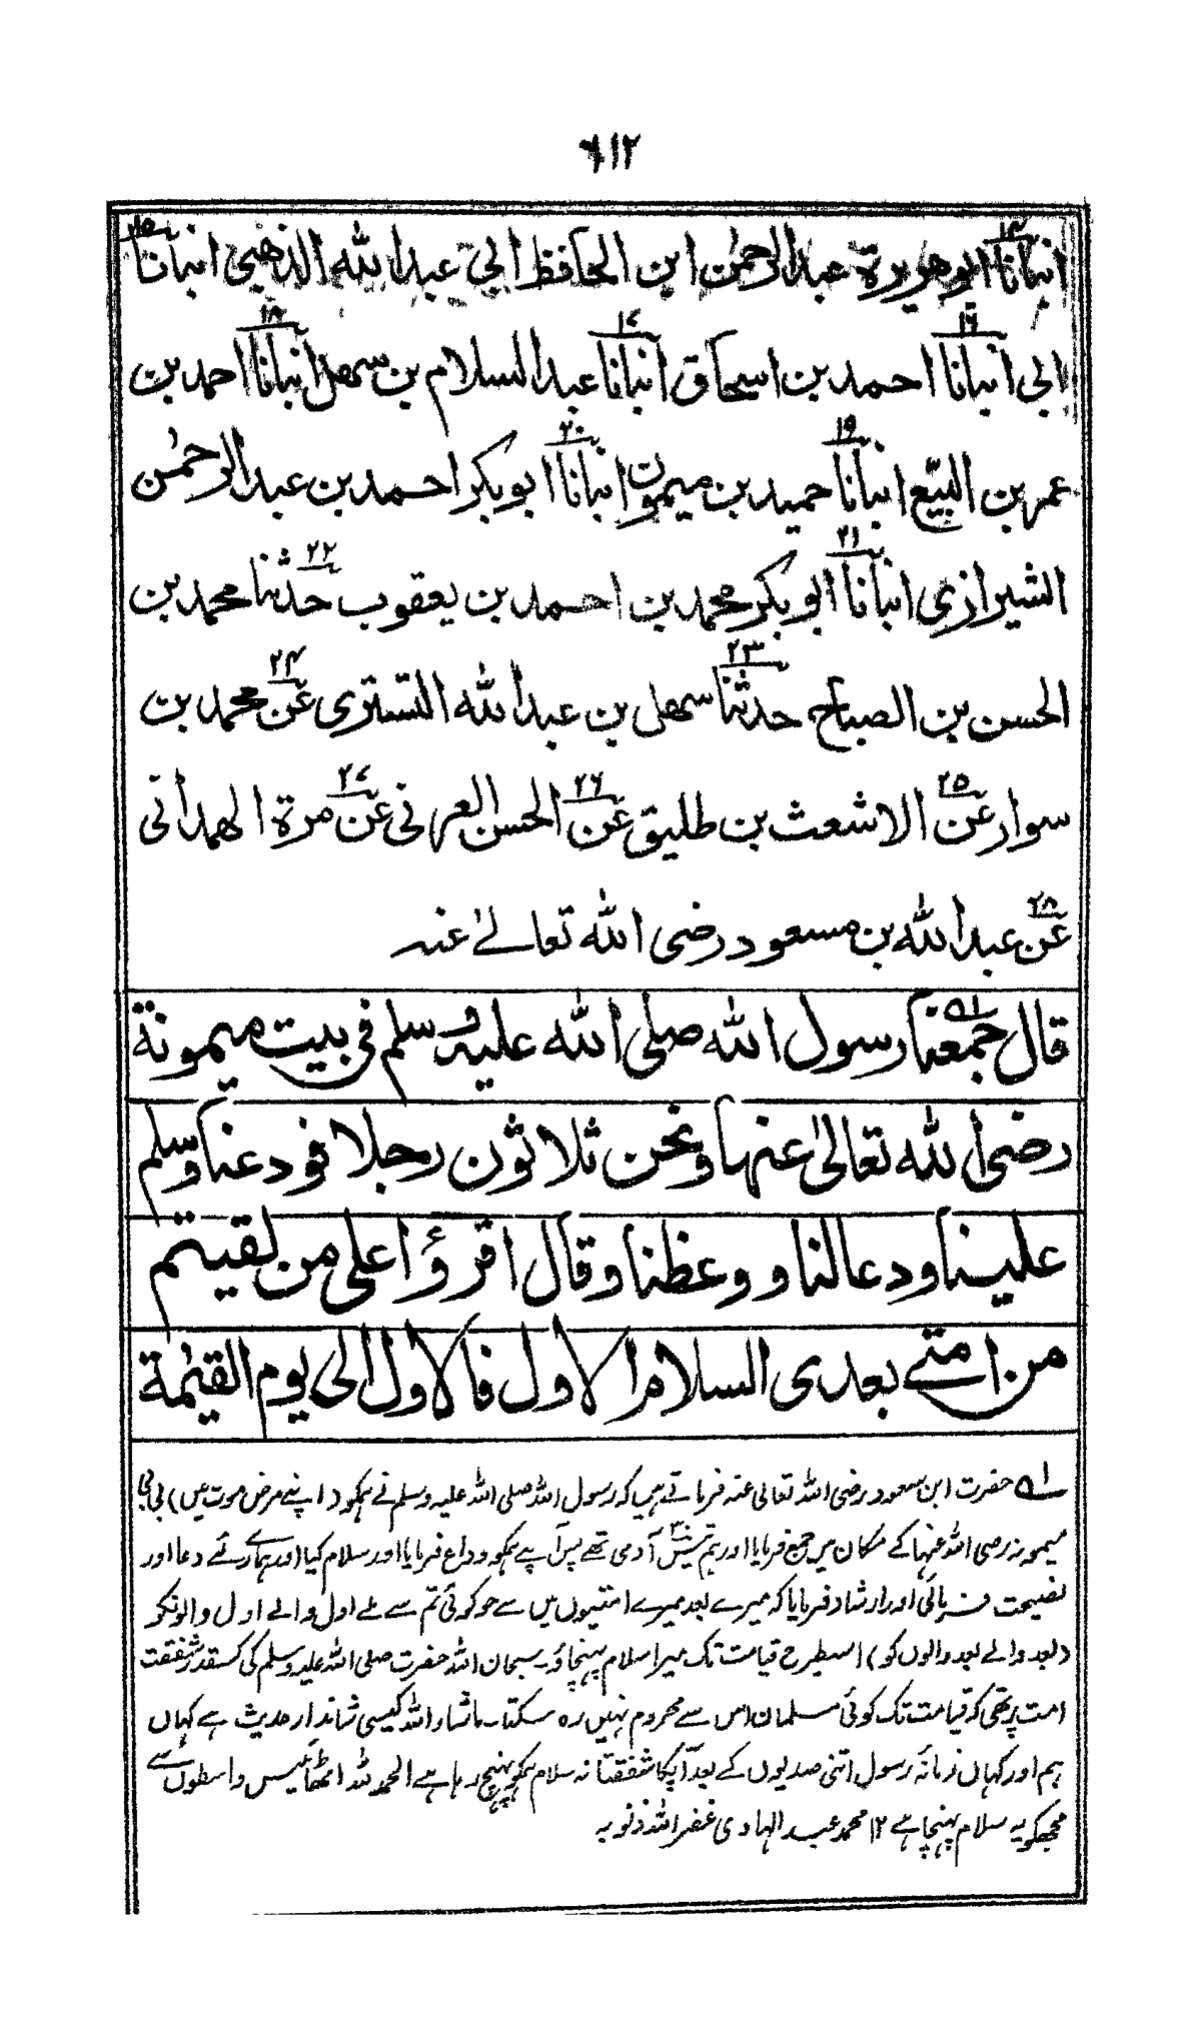 ٦١٢
١٤ انبأنا ابوهريرة عبدالرحمٰن ابن الحافظ ابي عبدالله الذهبي ١٥ انبأنا
ابي ١٦ انبأنا احمد بن اسحاق ١٧ انبأنا عبدالسلام بن سهل ١٨ انبأنا احمد بن
عمر بن البيّع ١٩ انبأنا حميد بن ميمون ٢٠ انبأنا ابوبكر احمد بن عبدالرحمٰن
الشيرازي ٢١ انبأنا ابوبكر محمد بن احمد بن يعقوب ٢٢ حدثنا محمد بن
الحسن بن الصباح ٢٣ حدثنا سهل بن عبدالله التستری ٢٤ عن محمد بن
سوار ٢٥ عن الاشعث بن طليق ٢٦ عن الحسن العرنی ٢٧ عن مرة الهمدانی
٢٨ عن عبدالله بن مسعود رضی الله تعالیٰ عنه
قال جمعنا ١ رسول الله صلی الله علیه وسلم فی بیت میمونة
رضی الله تعالیٰ عنها ونحن ثلاثون رجلا فودعنا وسلم
علینا ودعا لنا ووعظنا وقال اقرؤا علی من لقیتم
من امتی بعدی السلام الاول فالاول الی یوم القیٰمة
١ حضرت ابن مسعود رضی اللہ تعالی عنہ فرماتے ہیں کہ رسول اللہ صلی اللہ علیہ وسلم نے ہمکو (اپنے مرض موت میں) بی بی
میمونہ رضی اللہ عنہا کے مکان میں جمع فرمایا اور ہم تیس ٣٠ آدمی تھے پس آپ نے ہمکو وداع فرمایا اور سلام کیا اور ہمارے لئے دعا اور
نصیحت فرمائی اور ارشاد فرمایا کہ میرے بعد میرے امتیوں میں سے جو کوئی تم سے ملے اول والے اول والونکو
(بعد والے بعد والوں کو) اسطرح قیامت تک میرا سلام پہنچاؤ۔ سبحان اللہ حضرت صلی اللہ علیہ وسلم کی کسقدر شفقت
امت پر تھی کہ قیامت تک کوئی مسلمان اس سے محروم نہیں رہ سکتا۔ ماشاء اللہ کیسی شاندار حدیث ہے کہاں
ہم اور کہاں زمانۂ رسول اتنی صدیوں کے بعد آپکا شفقتانہ سلام ہمکو پہنچ رہا ہے الحمد للہ اٹھائیس واسطوں سے
مجھکو یہ سلام پہنچا ہے ١٢ محمد عبد الہادی غفر اللہ ذنوبہ